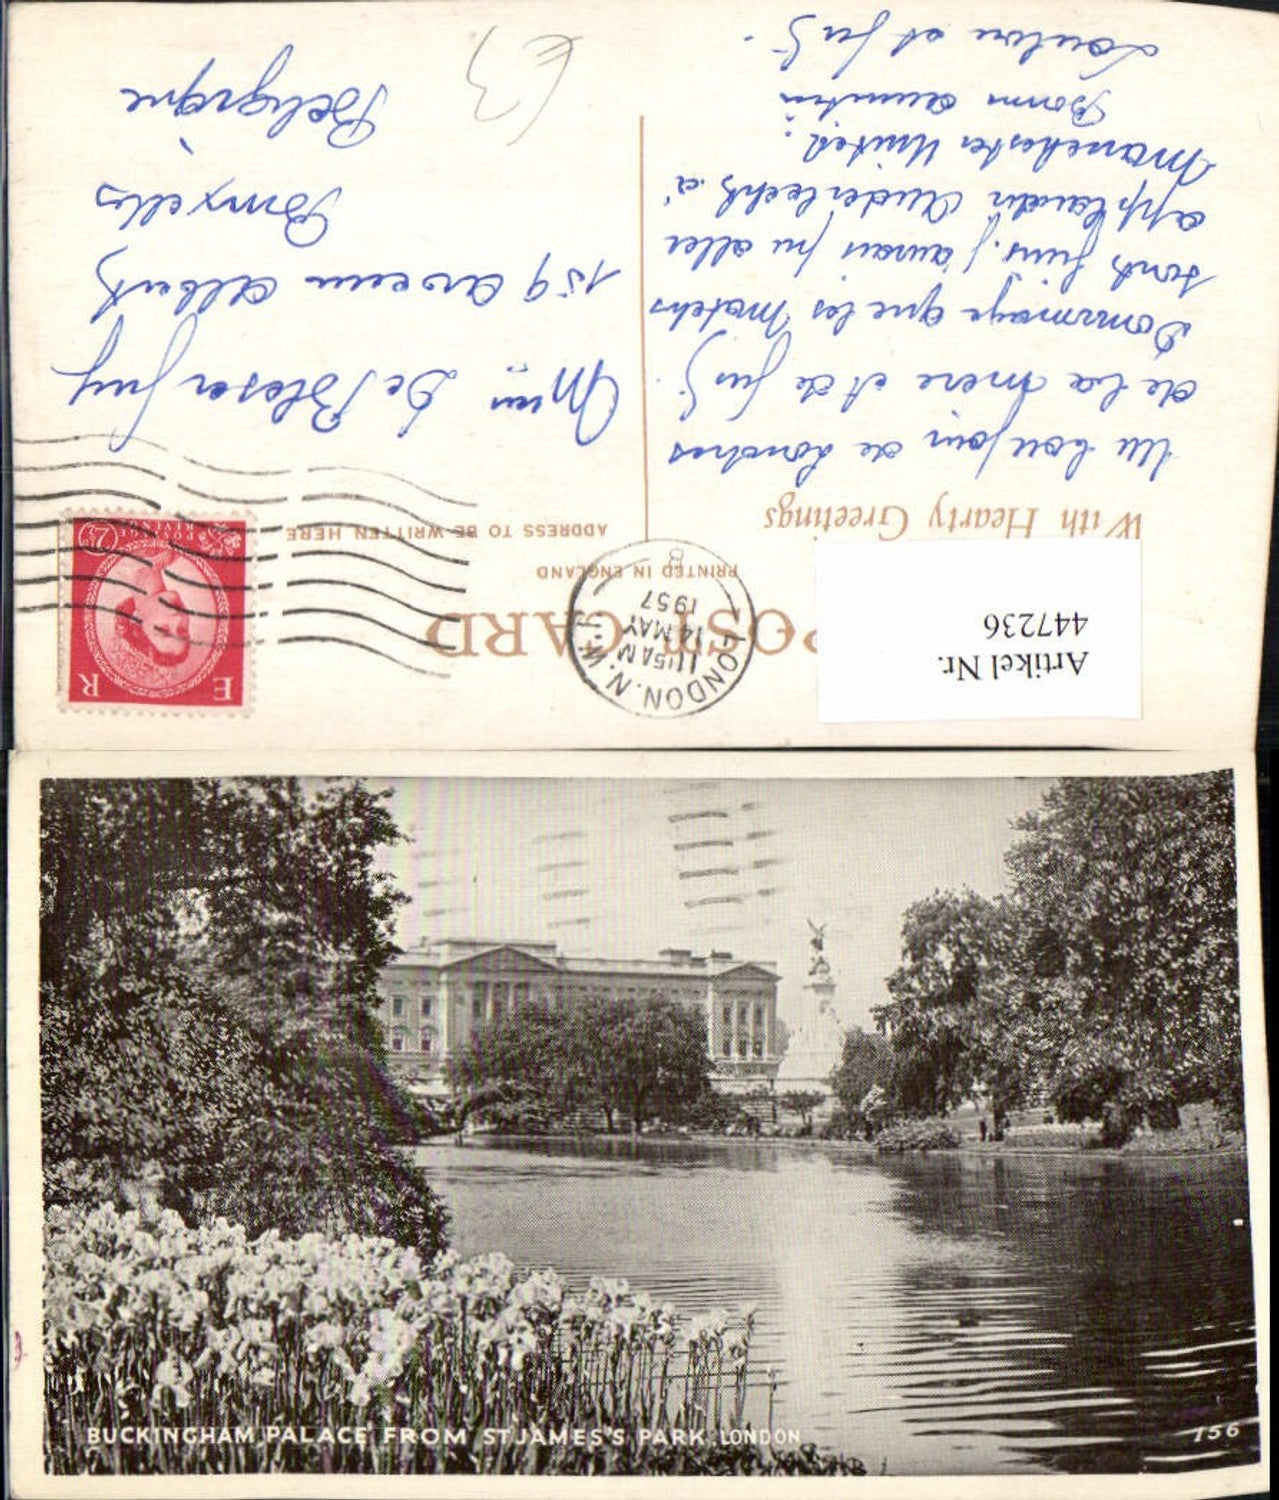 POST CARD
PRINTED IN ENGLAND
ADDRESS TO BE WRITTEN HERE
With Hearty Greetings
Artikel Nr.
447236
LONDON. N.W.1.
1115AM
14 MAY
1957
E R
POSTAGE
REVENUE
2½
Un bonjour de Londres
de la mère et de
Dommage que les Matchs
sont finis, j'aurais pu aller
applaudir Anderlecht à
Manchester United.
Bonne
et
De Bleser
159 Avenue Albert
Bruxelles
Belgique
£3
BUCKINGHAM PALACE FROM ST JAMES'S PARK, LONDON
156